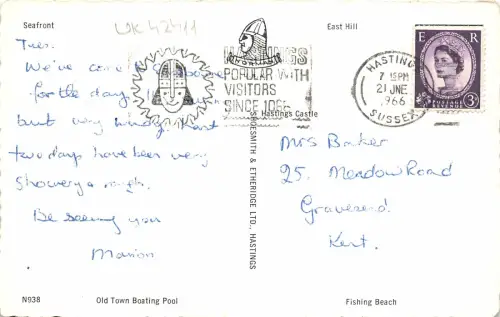 UK 42411
Seafront
East Hill
Tues.
We've come to
for the day
but very windy. Last
two days have been very
showery & rough.
Be seeing you
Marion
HASTINGS
POPULAR WITH
VISITORS
SINCE 1066
HASTINGS
7 15 PM
21 JNE
1966
SUSSEX
E R
POSTAGE
REVENUE
3D
Hastings Castle
& ETHERIDGE LTD., HASTINGS
Mrs Baker
25, Meadow Road
Gravesend
Kent.
N938
Old Town Boating Pool
Fishing Beach